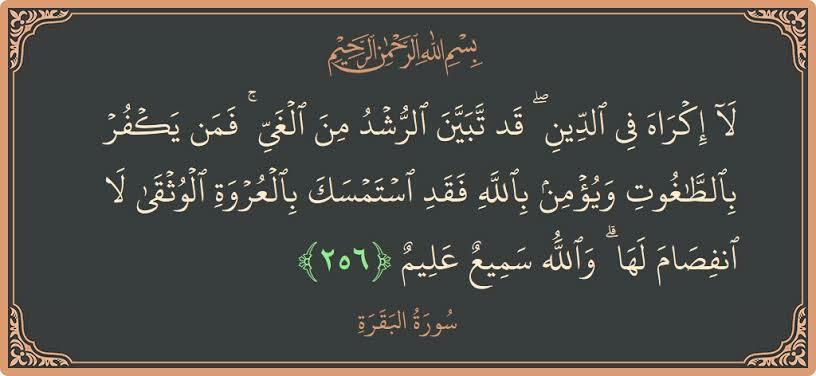 بِسْمِ اللهِ الرَّحْمٰنِ الرَّحِيْمِ
لَآ إِكۡرَاهَ فِي ٱلدِّينِۖ قَد تَّبَيَّنَ ٱلرُّشۡدُ مِنَ ٱلۡغَيِّۚ فَمَن يَكۡفُرۡ
بِٱلطَّٰغُوتِ وَيُؤۡمِنۢ بِٱللَّهِ فَقَدِ ٱسۡتَمۡسَكَ بِٱلۡعُرۡوَةِ ٱلۡوُثۡقَىٰ لَا
ٱنفِصَامَ لَهَاۗ وَٱللَّهُ سَمِيعٌ عَلِيمٌ ﴿٢٥٦﴾
سُورَةُ البَقَرَةِ